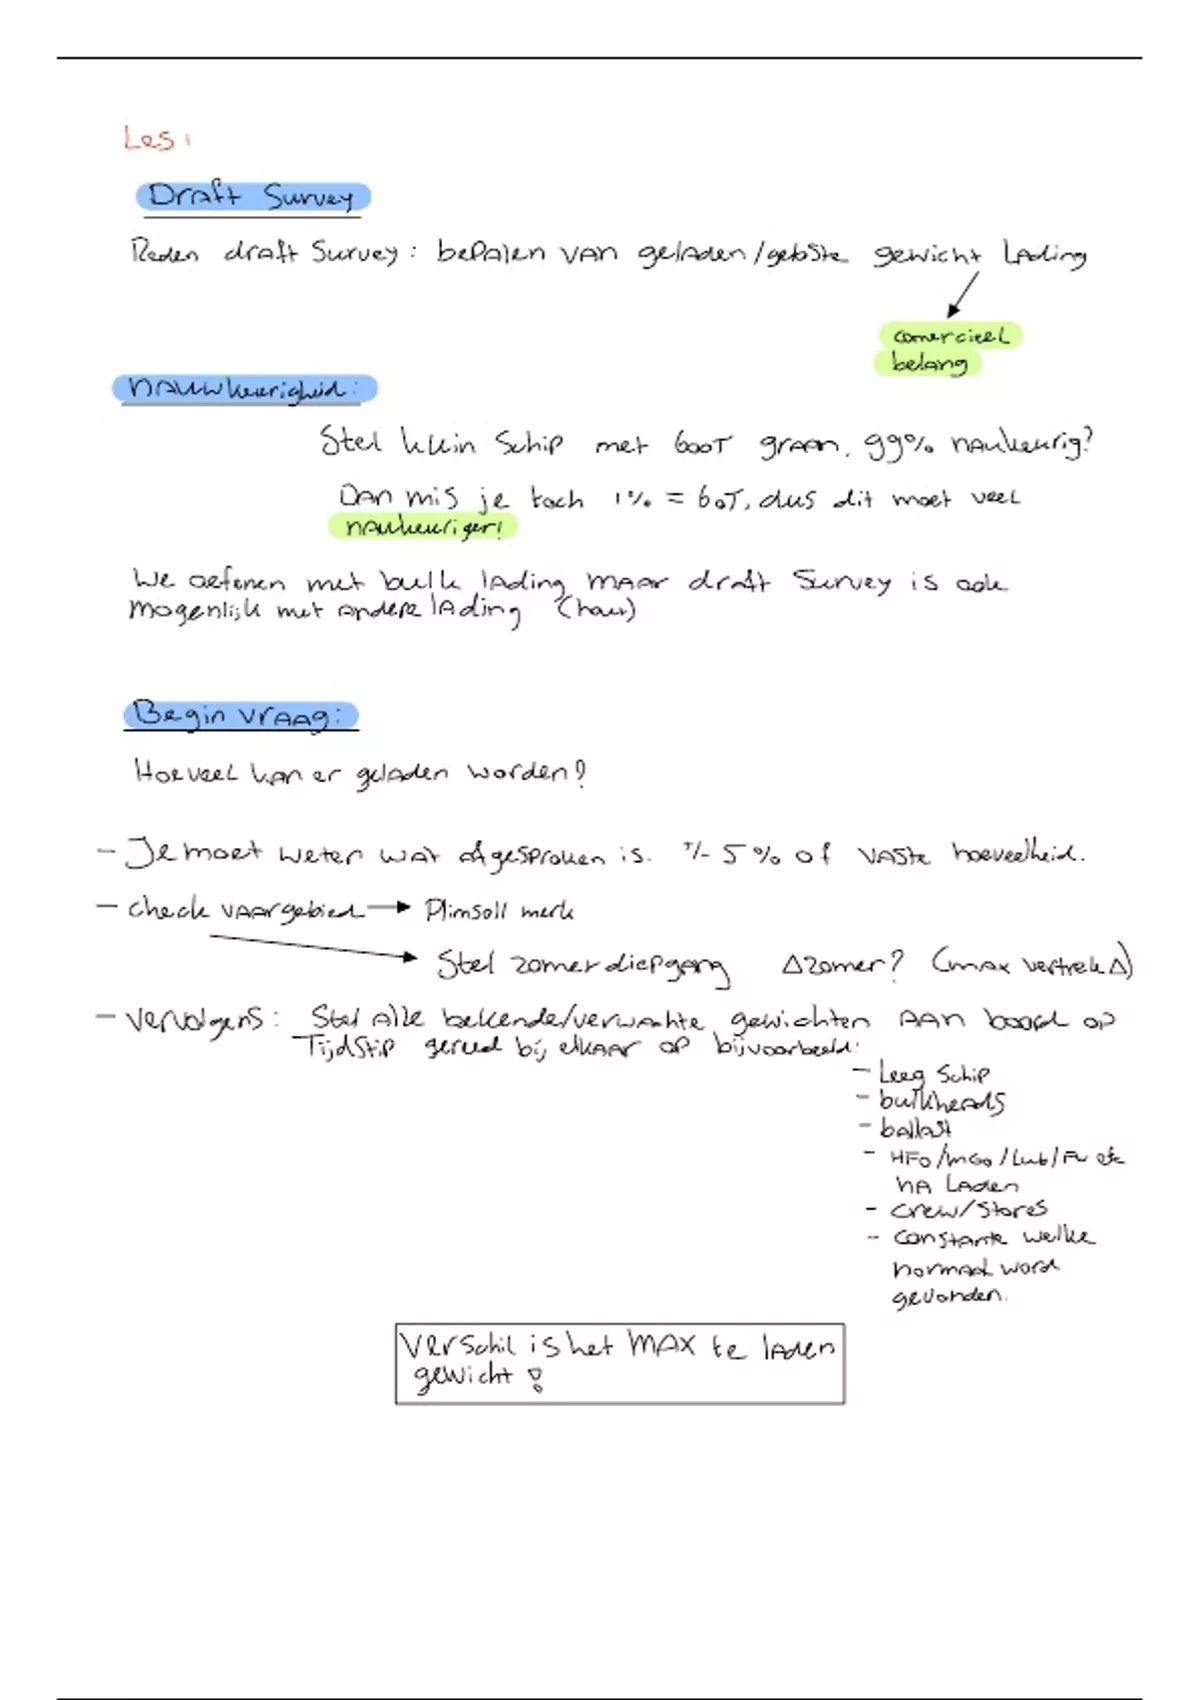 Les 1
Draft Survey
Reden draft Survey: bepalen van geladen/geloste gewicht lading
comercieel
belang
nauwkeurigheid:
Stel klein Schip met 600T graan, 99% naukeurig?
Dan mis je toch 1% = 60T, dus dit moet veel
naukeuriger!
We oefenen met bulk lading maar draft Survey is ook
mogenlijk met andere lading (hout)
Begin vraag:
Hoeveel kan er geladen worden?
- Je moet weten wat afgesproken is. +/- 5% of vaste hoeveelheid.
- check vaargebied → Plimsoll merk
Stel zomerdiepgang Δzomer? (max vertrek Δ)
- vervolgens: Stel Alle bekende/verwachte gewichten aan boord op
Tijdstip gereed bij elkaar op bijvoorbeeld:
- Leeg Schip
- bulkheads
- ballast
- HFO/MGO/Lub/FW etc
na Laden
- crew/stores
- constante welke
normaal word
gevonden.
Verschil is het MAX te laden
gewicht!